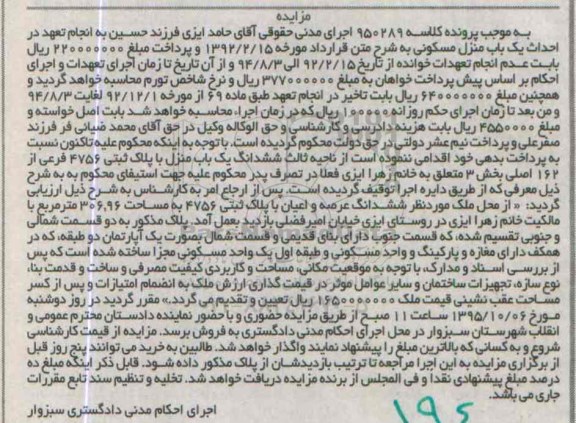 مزایده
به موجب پرونده کلاسه ۹۵۰۲۸۹ اجرای مدنی حقوقی آقای حامد ایزی فرزند حسین به انجام تعهد در
احداث یک باب منزل مسکونی به شرح متن قرارداد مورخه ۱۳۹۲/۲/۱۵ و پرداخت مبلغ ۲۲۰۰۰۰۰۰۰ ریال
بابت عدم انجام تعهدات خوانده از تاریخ ۹۲/۲/۱۵ الی ۹۴/۸/۳ و از آن تاریخ تا زمان اجرای تعهدات و اجرای
احکام بر اساس پیش پرداخت خواهان به مبلغ ۳۷۷۰۰۰۰۰۰ ریال و نرخ شاخص تورم محاسبه خواهد گردید و
همچنین مبلغ ۶۴۰۰۰۰۰۰۰ ریال بابت تاخیر در انجام تعهد طبق ماده ۶۹ از مورخه ۹۲/۱۲/۱ لغایت ۹۴/۸/۳
و من بعد تا زمان اجرای حکم روزانه ریال که در زمان اجراء محاسبه خواهد شد بابت اصل خواسته و
مبلغ ۴۵۵۰۰۰۰ ریال بابت هزینه دادرسی و کارشناسی و حق الوکاله وکیل در حق آقای محمد ضیائی فر فرزند
صفرعلی و پرداخت نیم عشر دولتی در حق دولت محکوم گردیده است. با توجه به اینکه محکوم علیه تاکنون نسبت
به پرداخت بدهی خود اقدامی ننموده است از ناحیه ثالث ششدانگ یک باب منزل با پلاک ثبتی ۴۷۵۶ فرعی از
۱۶۲ اصلی بخش ۳ متعلق به خانم زهرا ایزی فعلا در تصرف پدر محکوم علیه جهت استیفای محکوم به به شرح
ذیل معرفی که از طریق دایره اجرا توقیف گردیده است. پس از ارجاع امر به کارشناس به شرح ذیل ارزیابی
گردید: « از محل ملک موردنظر ششدانگ عرصه و اعیان با پلاک ثبتی ۴۷۵۶ به مساحت ۳۰۶,۹۶ مترمربع با
مالکیت خانم زهرا ایزی در روستای ایزی خیابان امیرفضلی بازدید بعمل آمد. پلاک مذکور به دو قسمت شمالی
و جنوبی تقسیم شده، که قسمت جنوب دارای بنای قدیمی و قسمت شمال بصورت یک آپارتمان دو طبقه، که در
همکف دارای مغازه و پارکینگ و واحد مسکونی و طبقه اول یک واحد مسکونی مجزا ساخته شده است که پس
از بررسی اسناد و مدارک، با توجه به موقعیت مکانی، مساحت و کاربردی کیفیت مصرفی و ساخت و قدمت بنا،
نوع سازه، تجهیزات ساختمان و سایر عوامل موثر در قیمت گذاری ارزش ملک به انضمام امتیازات و پس از کسر
مساحت عقب نشینی قیمت ملک ۱۶۵۰۰۰۰۰۰۰ ریال تعیین و تقدیم می گردد.» مقرر گردید در روز دوشنبه
مورخ ۱۳۹۵/۱۰/۰۶ ساعت ۱۱ صبح از طریق مزایده حضوری و با حضور نماینده دادستان محترم عمومی و
انقلاب شهرستان سبزوار در محل اجرای احکام مدنی دادگستری به فروش برسد. مزایده از قیمت کارشناسی
شروع و به کسانی که بالاترین مبلغ را پیشنهاد نمایند واگذار خواهد شد. طالبین به خرید می توانند پنج روز قبل
از برگزاری مزایده به این اجرا مراجعه تا ترتیب بازدیدشان از پلاک مذکور داده شود. قابل ذکر اینکه مبلغ ده
درصد مبلغ پیشنهادی نقدا و فی المجلس از برنده مزایده دریافت خواهد شد. تخلیه و تنظیم سند تابع مقررات
جاری می باشد.
اجرای احکام مدنی دادگستری سبزوار
۱۹۶